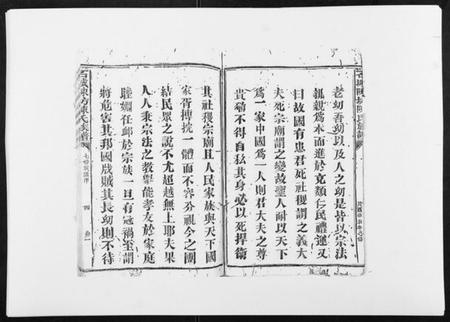 老幼吾幼以及人之幼是皆以宗法
親親為本而進於克類仁民禮運又
曰故國有患君死社稷謂之義大
夫死宗廟謂之變故聖人耐以天下
為一家中國為一人則君大夫之尊
貴猶不得自私其身必以死捍衛
其社稷宗廟且人民家族與天下國
家胥摶挽一體而不容分視今之團
結民眾之說不尤超越無上耶夫果
人人秉宗法之教舉能孝友於家庭
睦婣任卹於宗族一旦有寇禍至謂
將危害其邦國戕賊其長幼則不待
七修族譜序
四